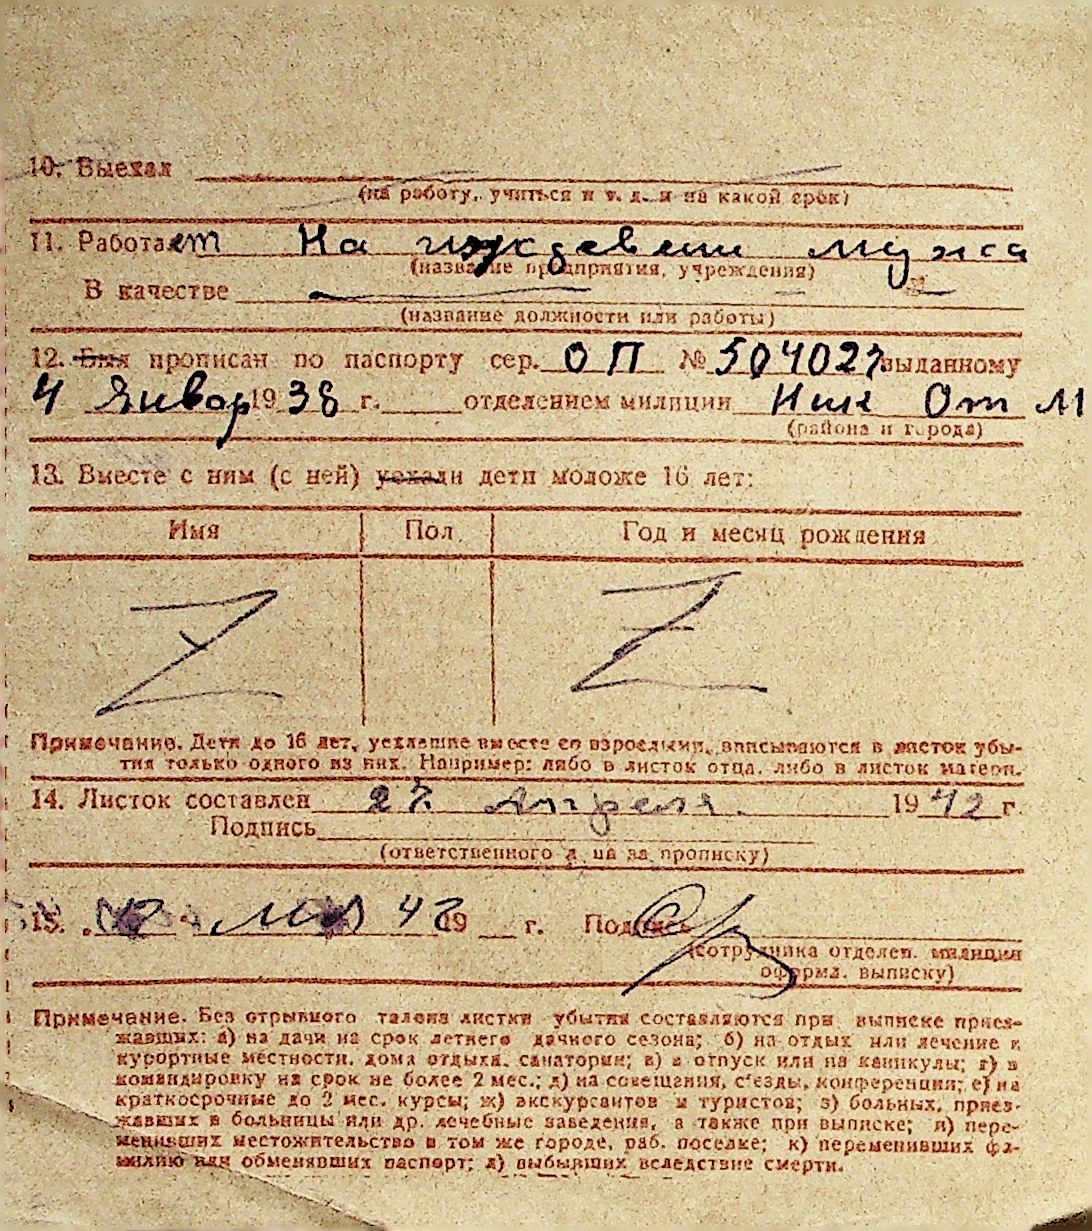 10. Выехал
(на работу, учиться и т. д. и на какой срок)
11. Работает На иждевени мужа
(название предприятия, учреждения)
В качестве
(название должности или работы)
12. Был прописан по паспорту сер. ОП № 504027 выданному
4 Январ 1938 г. отделением милиции От М
(района и города)
13. Вместе с ним (с ней) уехали дети моложе 16 лет:
Имя Пол Год и месяц рождения
Примечание. Дети до 16 лет, уехавшие вместе со взрослыми, вписываются в листок убы-
тия только одного из них. Например: либо в листок отца, либо в листок матери.
14. Листок составлен 27 Апреля 1942 г.
Подпись
(ответственного лица за прописку)
15. 42 19 г. Подпись
(сотрудника отделен. милиции
оформл. выписку)
Примечание. Без отрывного талона листки убытия составляются при выписке приез-
жавших: а) на дачи на срок летнего дачного сезона; б) на отдых или лечение в
курортные местности, дома отдыха, санатории; в) в отпуск или на каникулы; г) в
командировку на срок не более 2 мес.; д) на совещания, с'езды, конференции; е) на
краткосрочные до 2 мес. курсы; ж) экскурсантов и туристов; з) больных, приез-
жавших в больницы или др. лечебные заведения, а также при выписке; и) пере-
менивших местожительство в том же городе, раб. поселке; к) переменивших фа-
милию или обменявших паспорт; л) выбывших вследствие смерти.